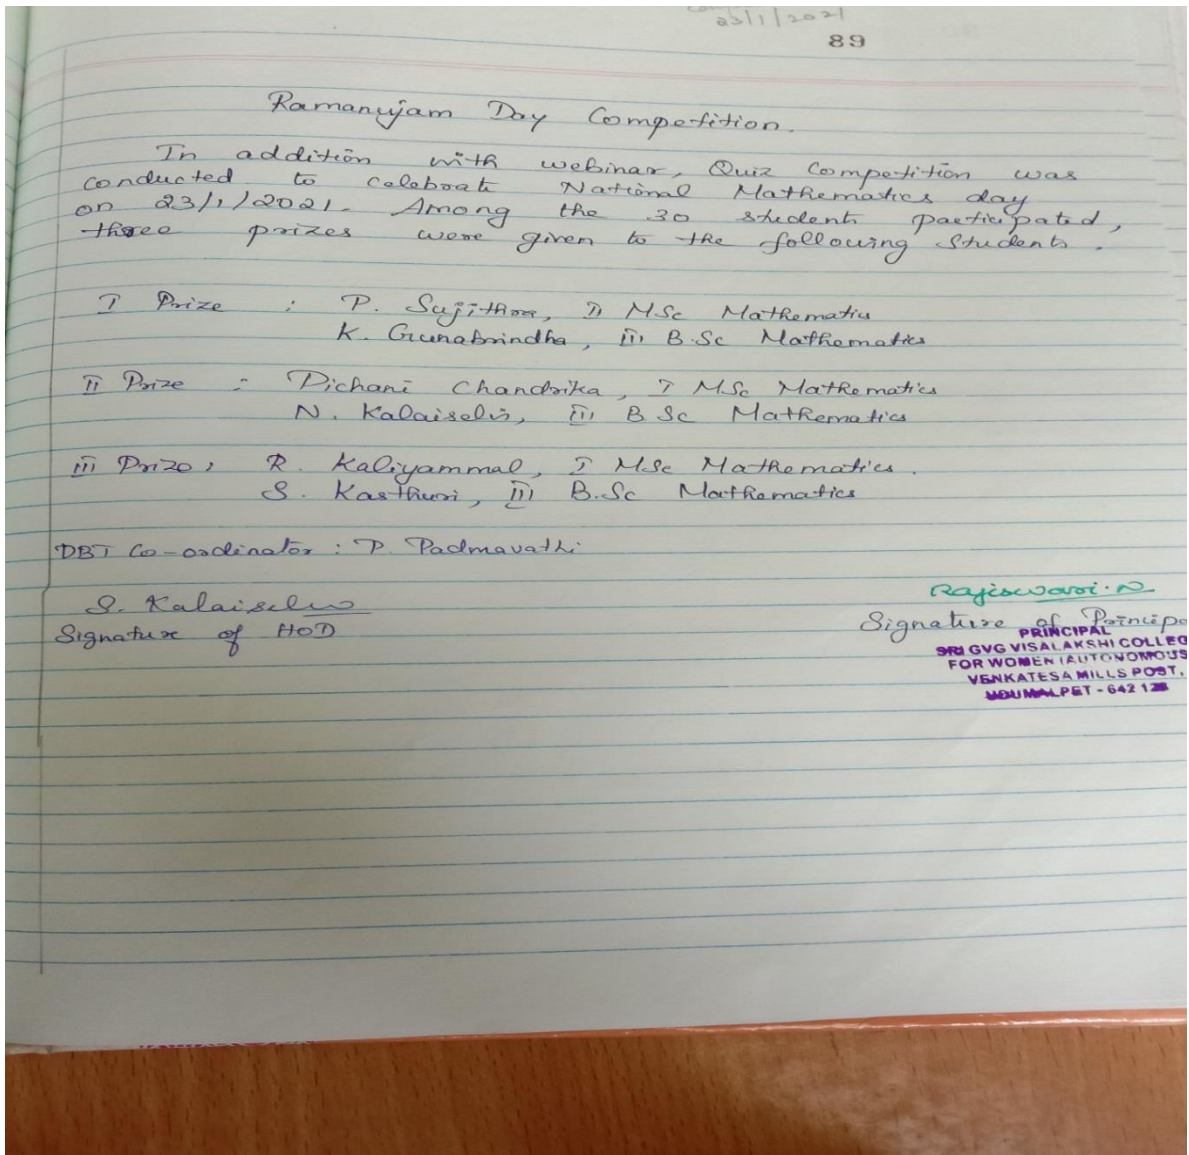 23/1/2021
89
Ramanujam Day Competition.
In addition with webinar, Quiz Competition was
conducted to celebrate National Mathematics day
on 23/1/2021. Among the 30 student participated,
three prizes were given to the following Students.
I Prize : P. Sujithra, II MSc Mathematics
K. Gunabrindha, III B.Sc Mathematics
II Prize : Pichani Chandrika, I MSc Mathematics
N. Kalaiselvi, III B Sc Mathematics
III Prize : R. Kaliyammal, I MSc Mathematics.
S. Kasthuri, III B.Sc Mathematics
DBT Co-ordinator : P. Padmavathi
S. Kalaiselvi
Signature of HOD
Rajeswari. N
Signature of Principa
PRINCIPAL
SRI GVG VISALAKSHI COLLEG
FOR WOMEN (AUTONOMOUS
VENKATESA MILLS POST,
UDUMALPET - 642 128